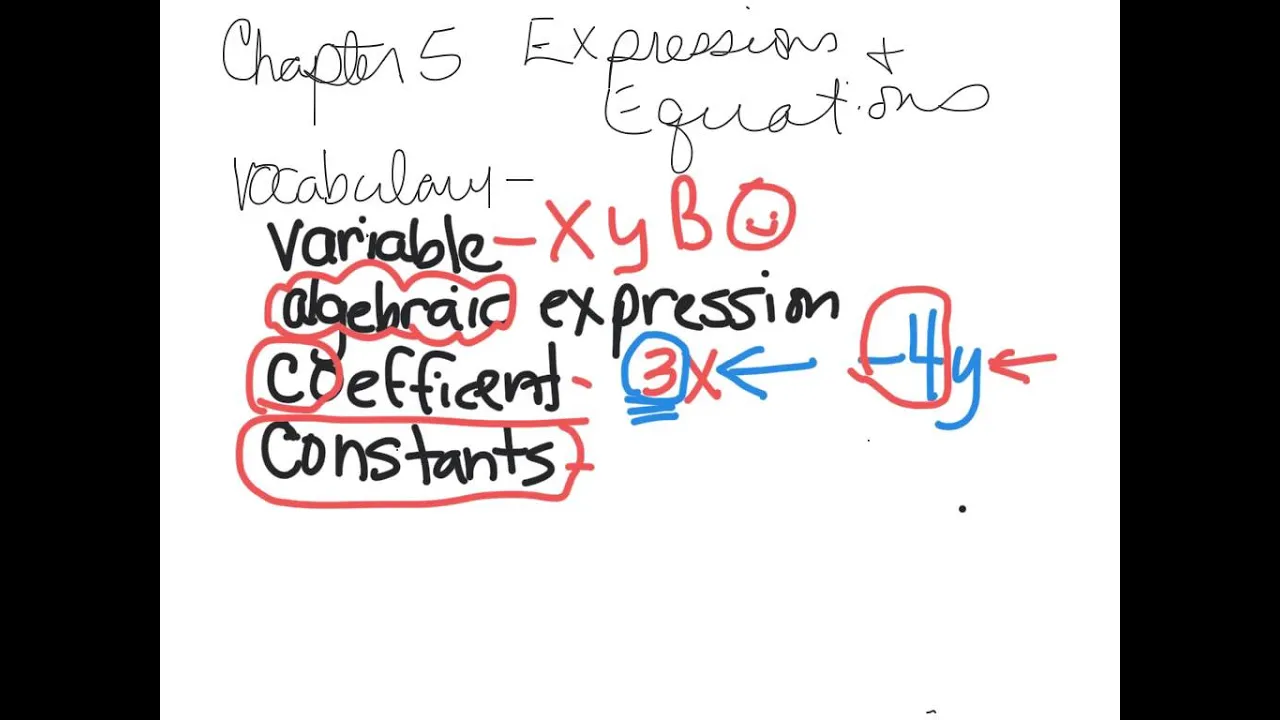 Chapter 5 Expressions +
Equations
Vocabulary -
Variable - X y B
algebraic expression
Coefficient - 3x -4y
Constants -